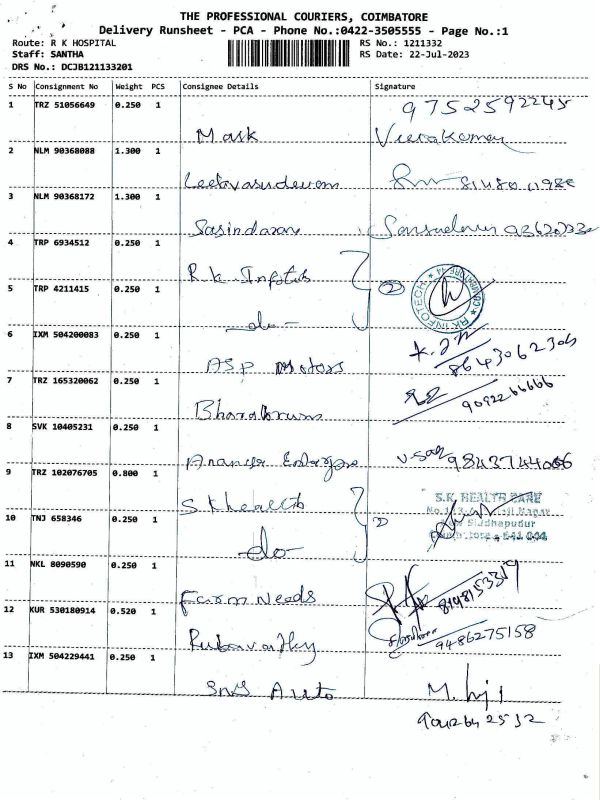 THE PROFESSIONAL COURIERS, COIMBATORE
Delivery Runsheet - PCA - Phone No.:0422-3505555 - Page No.:1
Route: R K HOSPITAL RS No.: 1211332
Staff: SANTHA RS Date: 22-Jul-2023
DRS No.: DCJB121133201
S No Consignment No Weight PCS Consignee Details Signature
1 TRZ 51056649 0.250 1 9752592245
Mask Veerakumar
2 NLM 90368088 1.300 1
3 NLM 90368172 1.300 1
Sasindaran
4 TRP 6934512 0.250 1
R.K Infotech
5 TRP 4211415 0.250 1 2 RK INFOTECH COIMBATORE
-do-
6 IXM 504200083 0.250 1
ASP Motors 8643062304
7 TRZ 165320062 0.250 1
9092266666
8 SVK 10405231 0.250 1
9843744066
9 TRZ 102076705 0.800 1
S.K health S.K. HEALTH CARE
10 TNJ 658346 0.250 1 2 Siddhapudur
-do- Coimbatore - 641 044
11 NKL 8090590 0.250 1
Farm Needs 8148153319
12 KUR 530180914 0.520 1
9486275158
13 IXM 504229441 0.250 1
SNS Auto